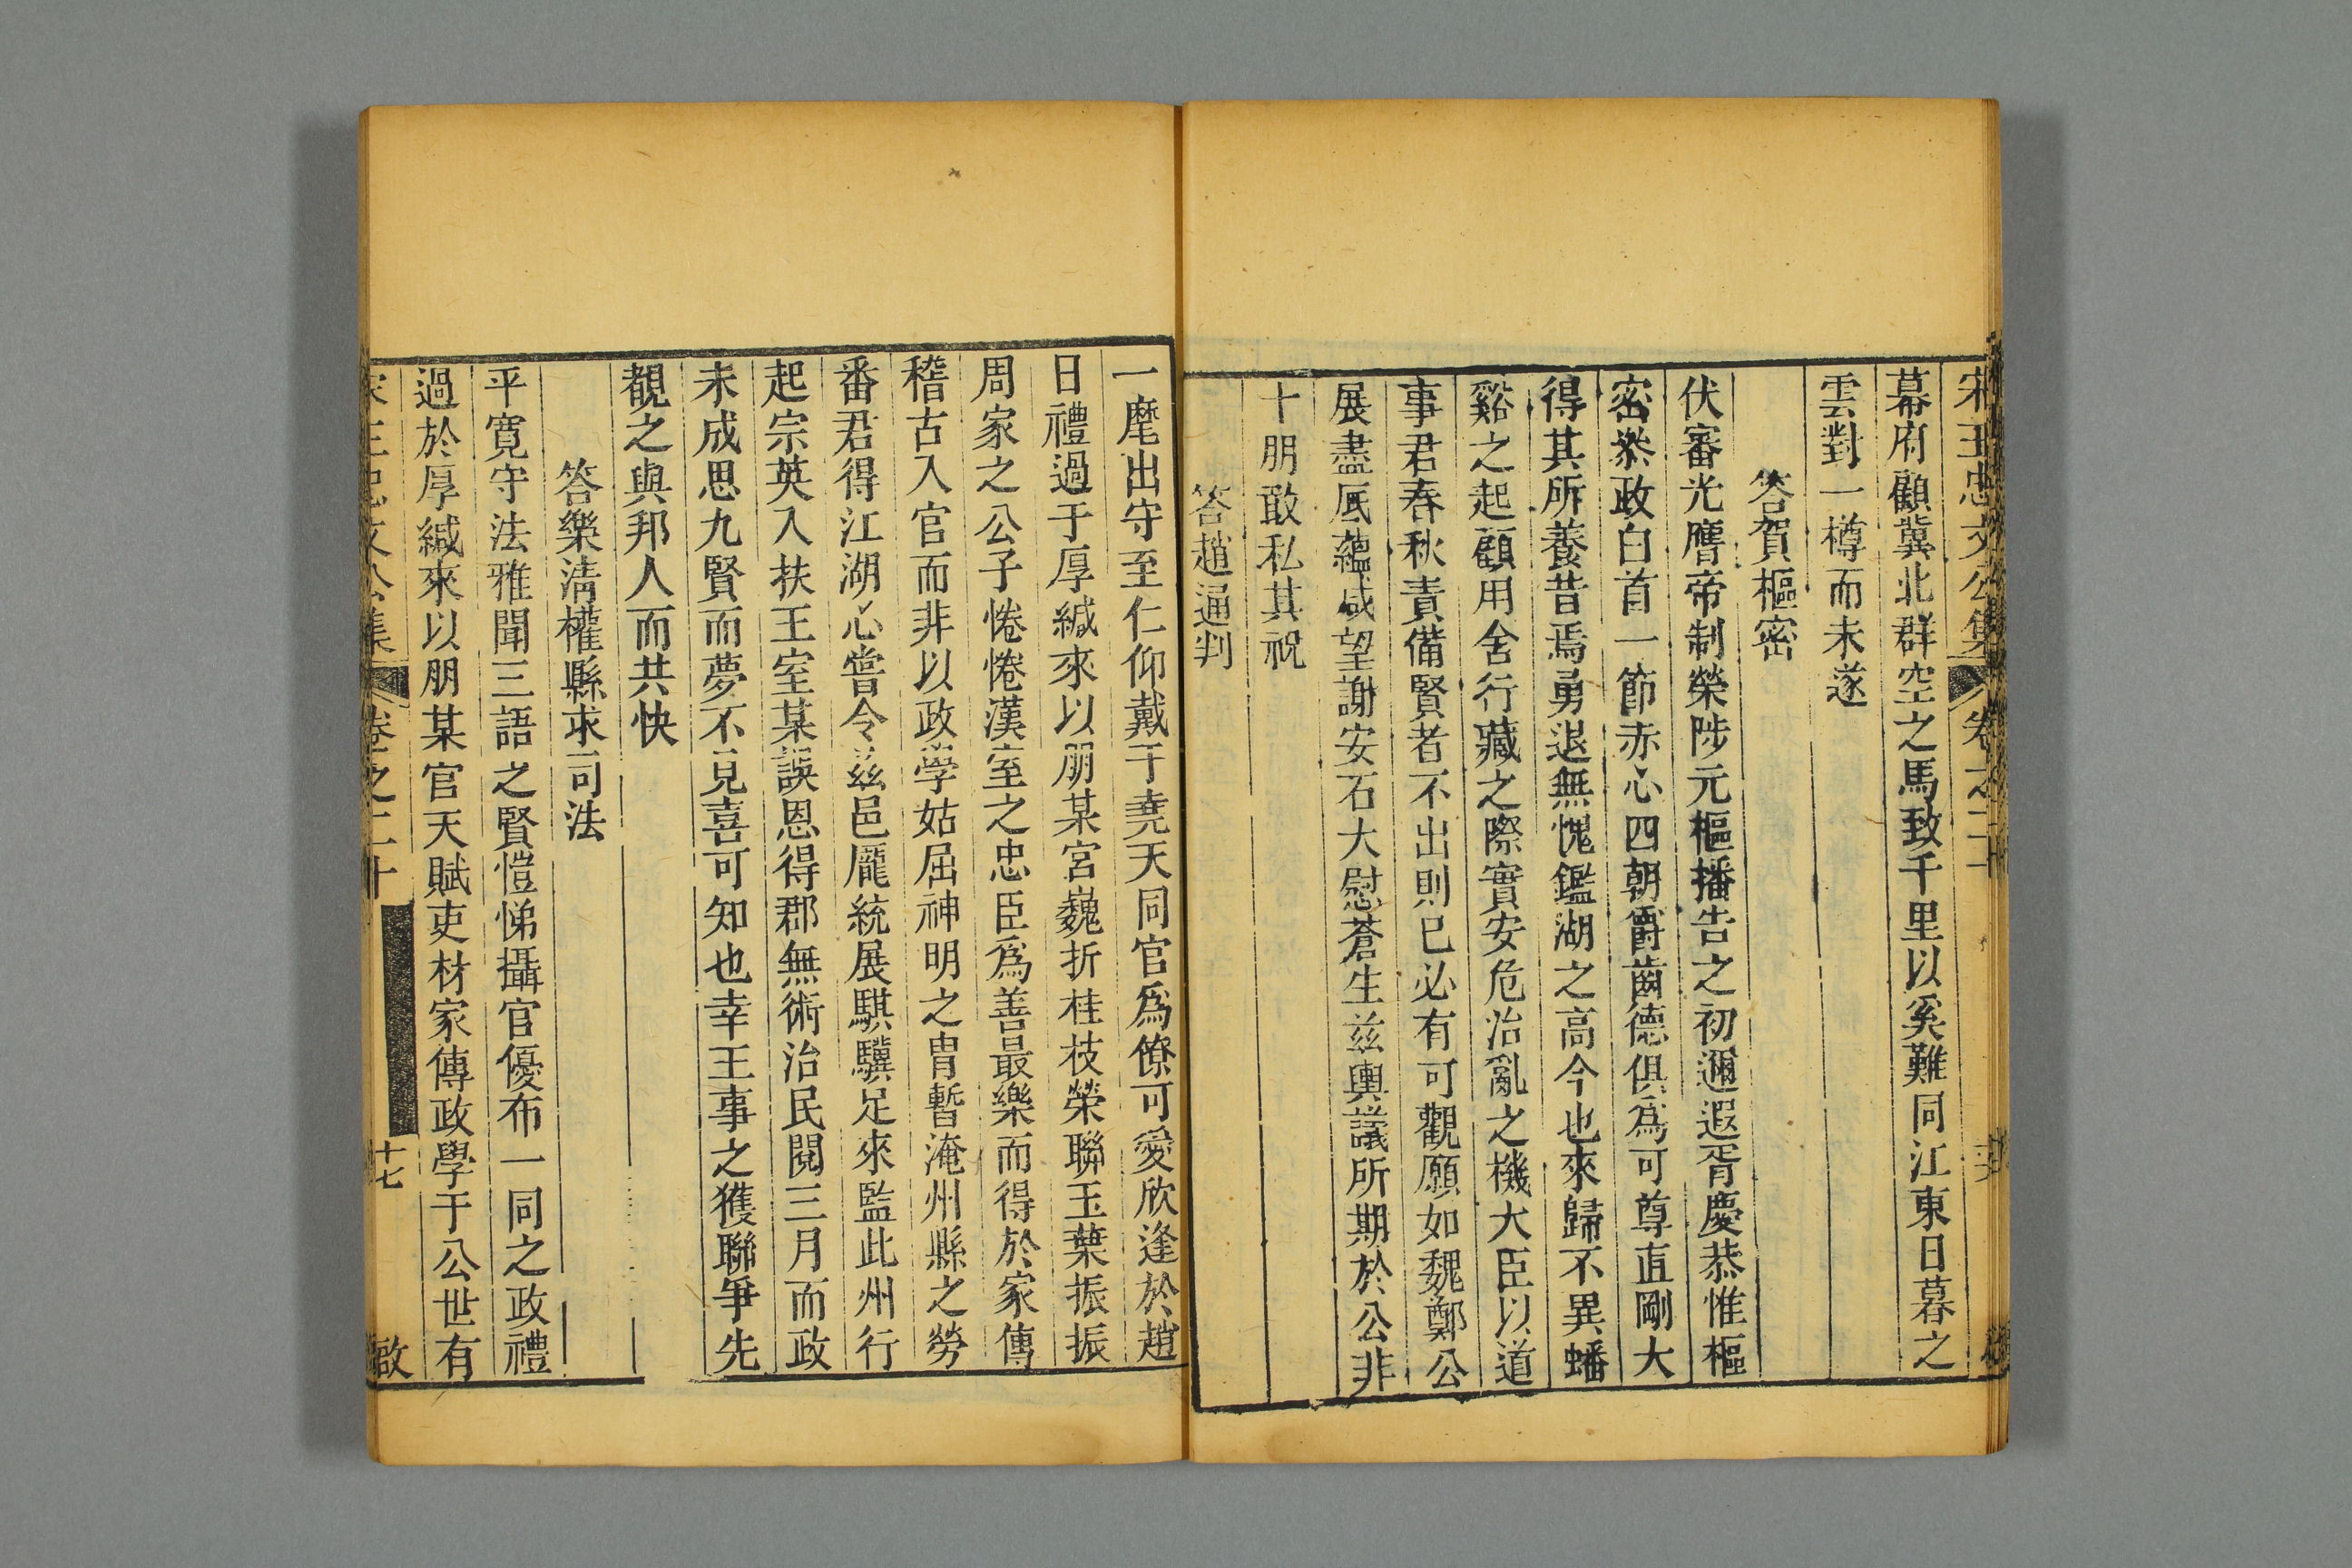 宋王忠文公集 卷之二十
幕府顧冀北群空之馬致千里以奚難同江東日暮之
雲對一樽而未遂
答賀樞密
伏審光膺帝制榮陟元樞播告之初邇遐胥慶恭惟樞
密叅政白首一節赤心四朝爵齒德俱爲可尊直剛大
得其所養昔焉勇退無愧鑑湖之高今也來歸不異蟠
谿之起顧用舍行藏之際實安危治亂之機大臣以道
事君春秋責備賢者不出則已必有可觀願如魏鄭公
展盡底蘊咸望謝安石大慰蒼生兹輿議所期於公非
十朋敢私其祝
答趙通判
一麾出守至仁仰戴于堯天同官爲僚可愛欣逢於趙
日禮過于厚緘來以朋某宮巍折桂枝榮聯玉葉振振
周家之公子惓惓漢室之忠臣爲善最樂而得於家傳
稽古入官而非以政學姑屈神明之胄暫淹州縣之勞
番君得江湖心嘗令兹邑龐統展騏驥足來監此州行
起宗英入扶王室某誤恩得郡無術治民閱三月而政
未成思九賢而夢不見喜可知也幸王事之獲聯爭先
覩之與邦人而共快
答樂清權縣求司法
平寬守法雅聞三語之賢愷悌攝官優布一同之政禮
過於厚緘來以朋某官天賦吏材家傳政學于公世有
宋王忠文公集 卷之二十 十七 啟